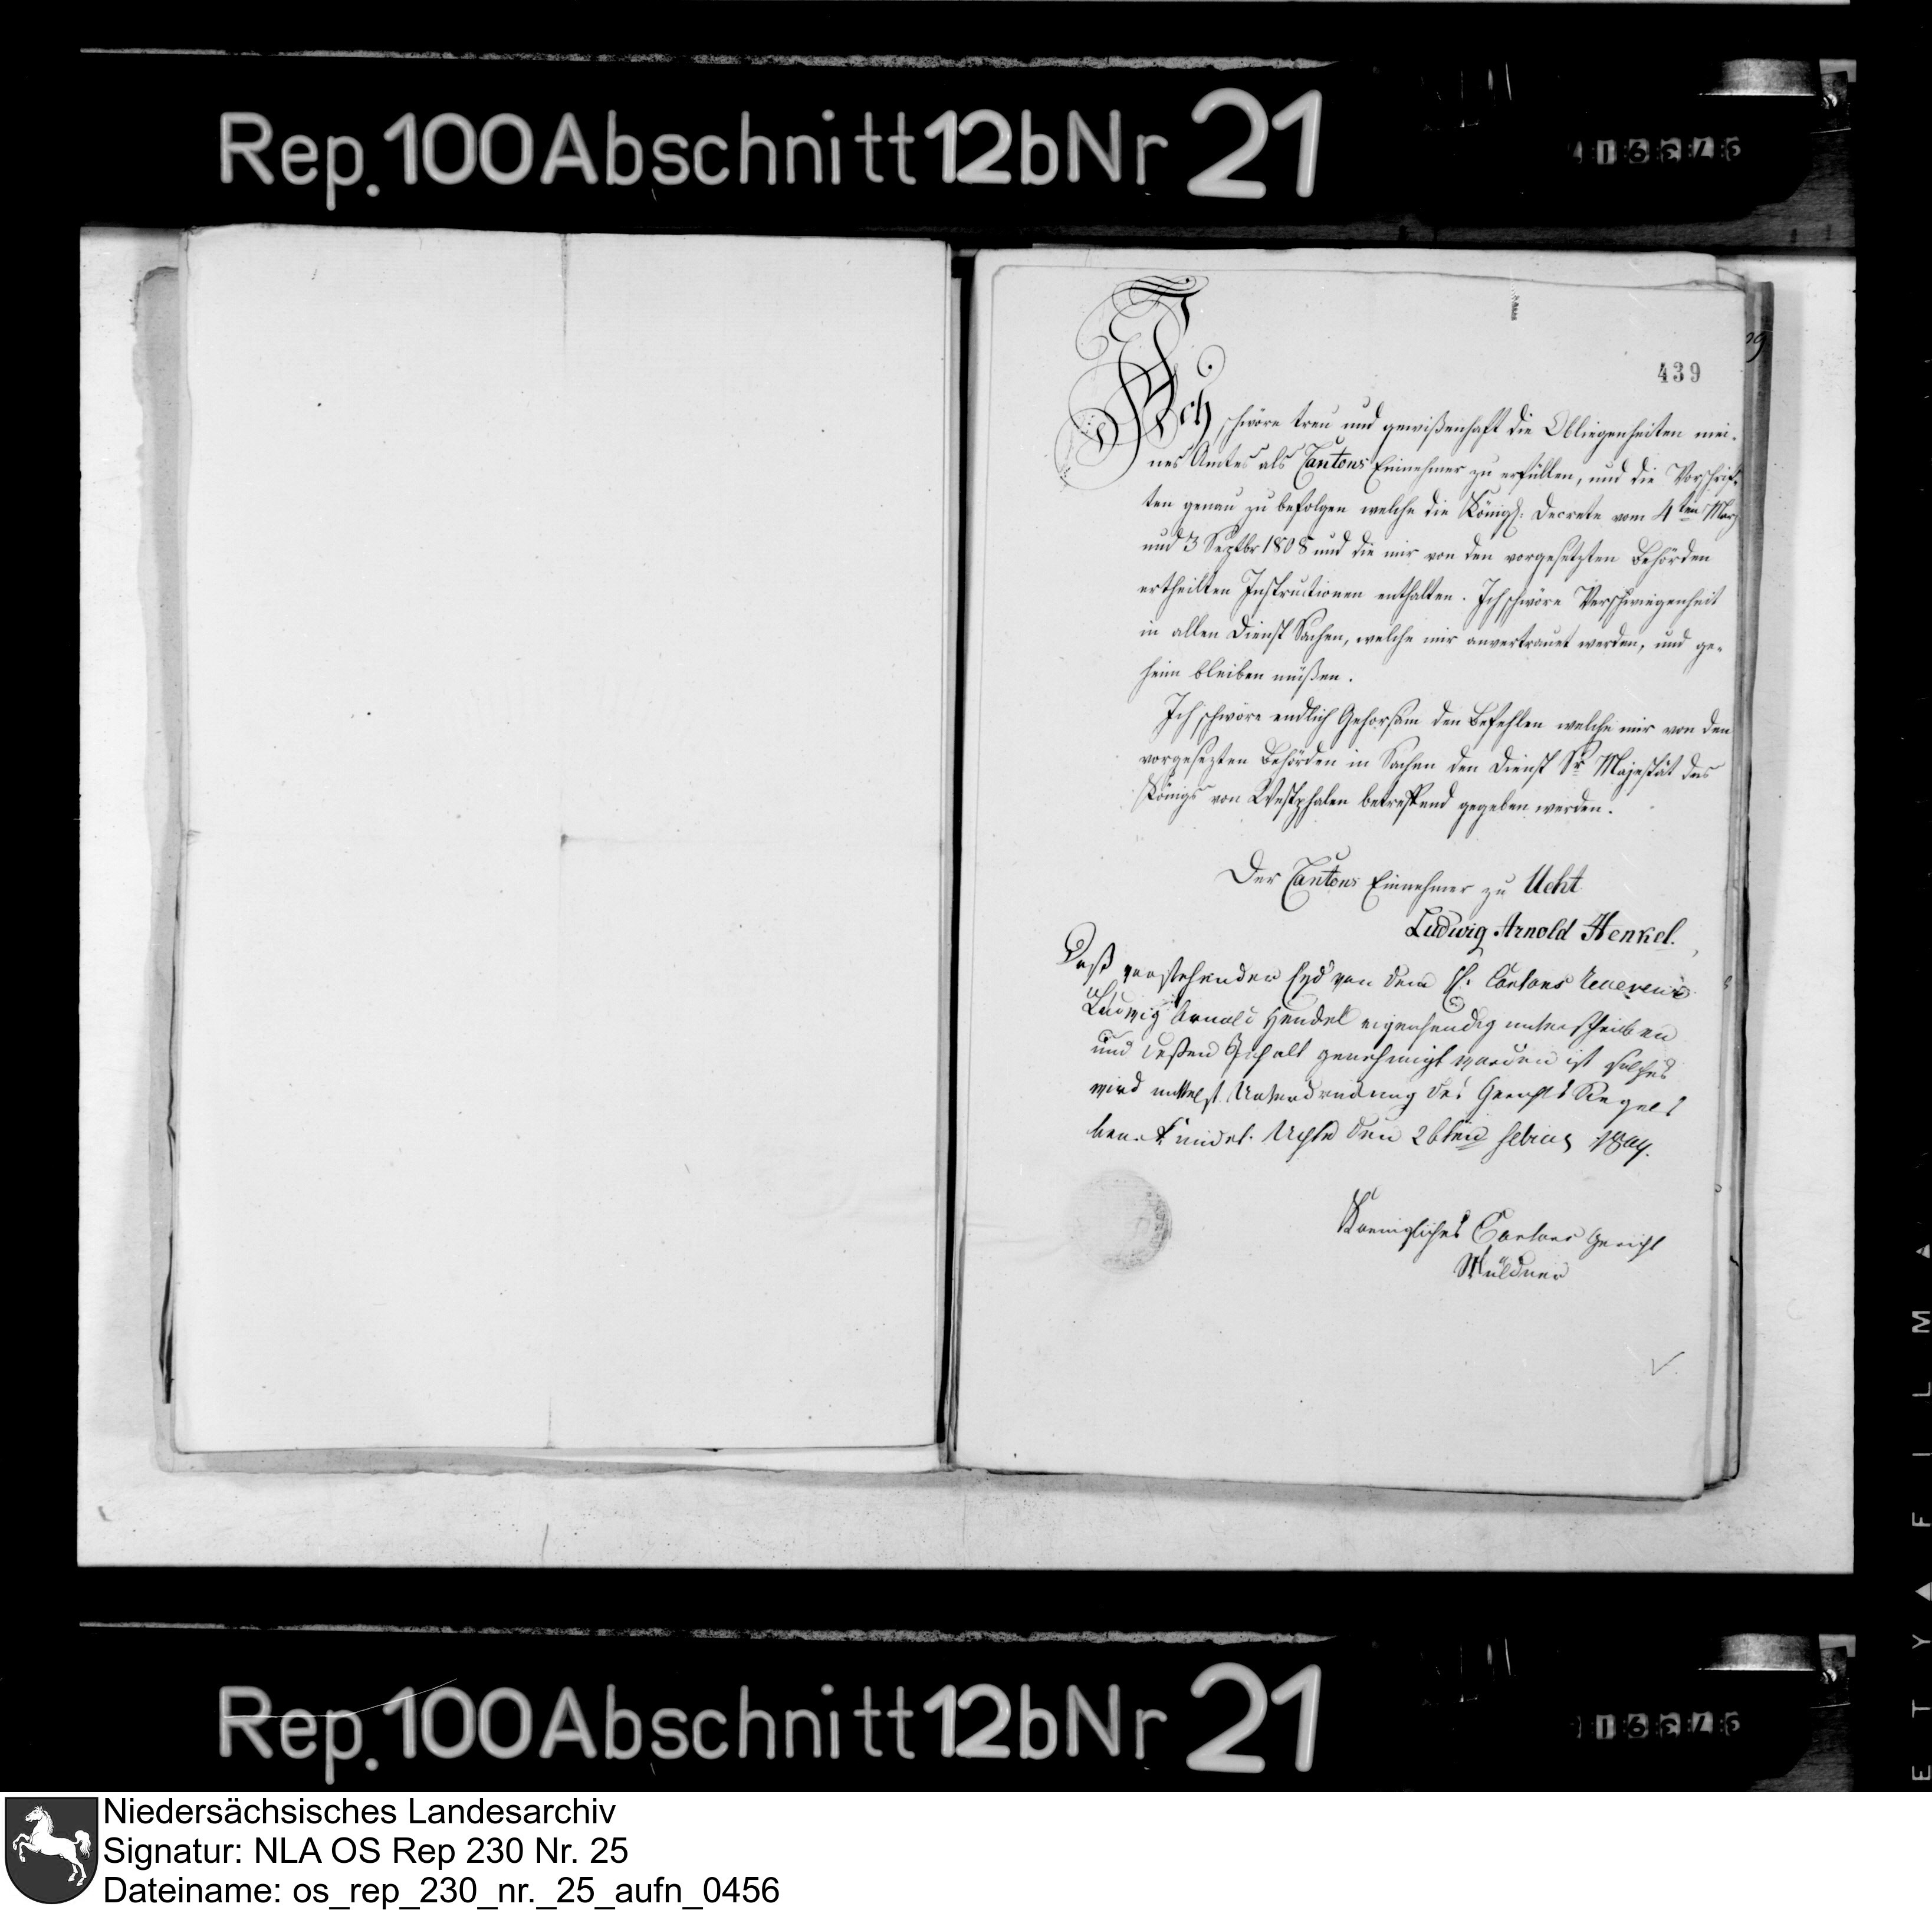 Rep. 100 Abschnitt 12b Nr 21
439
Ich schwöre treu und gewißenhaft die Obliegenheiten mei-
nes Amtes als Cantons Einnehmer zu erfüllen, und die Vorschrif-
ten genau zu befolgen welche die Königl: Decrete vom 4ten März
und 3 Septbr 1808 und die mir von den vorgesetzten Behörden
ertheilten Instructionen enthalten. Ich schwöre Verschwiegenheit
in allen Dienst Sachen, welche mir anvertrauet werden, und ge-
heim bleiben müßen.
Ich schwöre endlich Gehorsam den Befehlen welche mir von den
vorgesezten Behörden in Sachen den Dienst Sr Majestät des
Königs von Westphalen betreffend gegeben werden.
Der Cantons Einnehmer zu Ucht
Ludwig Arnold Henkel.
Daß vorstehender Eyd von dem H. Cantons
Ludwig Arnold Henckel eigenhändig unterschrieben
und deßen Inhalt genehmigt worden ist solches
wird mittelst Unterdrückung des Gerichts Siegels
beurkundet. Uchte den 26ten
Koenigliches Cantons Gericht
Müldner
Rep. 100 Abschnitt 12b Nr 21
Niedersächsisches Landesarchiv
Signatur: NLA OS Rep 230 Nr. 25
Dateiname: os_rep_230_nr._25_aufn_0456